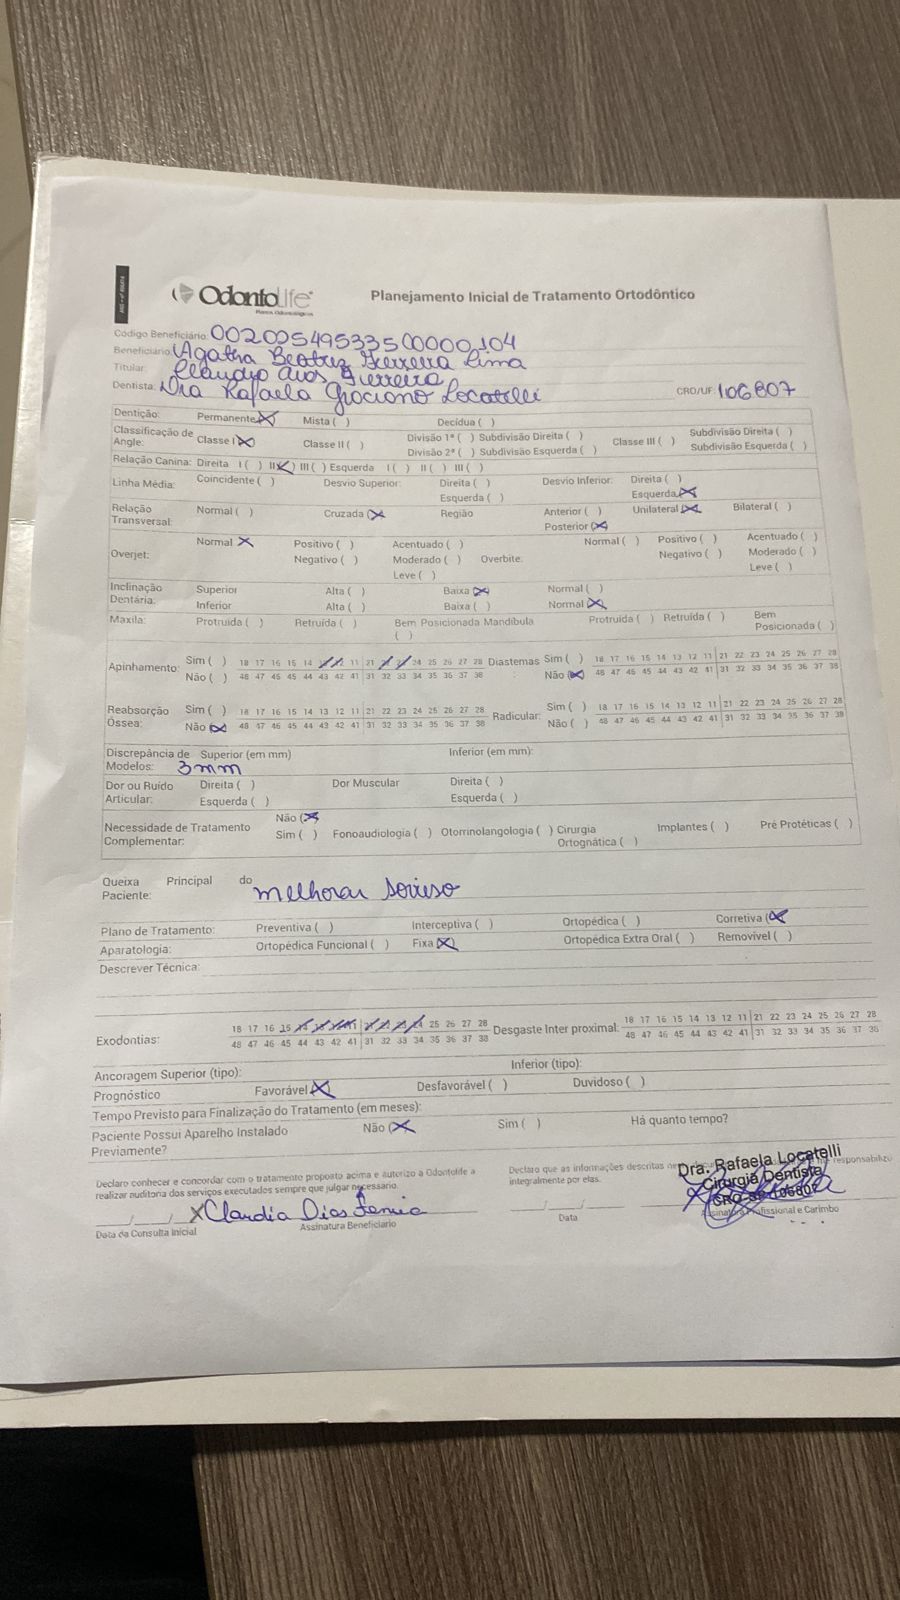 OdontoLife
Planos Odontológicos
Planejamento Inicial de Tratamento Ortodôntico
Código Beneficiário: 00200549533500000104
Beneficiário: Agatha Beatriz Ferreira Lima
Titular: Claudia Dias Ferreira
Dentista: Dra Rafaela Graciano Locatelli CRO/UF: 106807
Dentição: Permanente (X) Mista ( ) Decídua ( )
Classificação de Angle: Classe I (X) Classe II ( ) Divisão 1ª ( ) Subdivisão Direita ( ) Classe III ( ) Subdivisão Direita ( )
Divisão 2ª ( ) Subdivisão Esquerda ( ) Subdivisão Esquerda ( )
Relação Canina: Direita I ( ) II (X) III ( ) Esquerda I ( ) II ( ) III ( )
Linha Média: Coincidente ( ) Desvio Superior: Direita ( ) Desvio Inferior: Direita ( )
Esquerda ( ) Esquerda (X)
Relação Transversal: Normal ( ) Cruzada (X) Região Anterior ( ) Unilateral (X) Bilateral ( )
Posterior (X)
Overjet: Normal X Positivo ( ) Acentuado ( ) Overbite: Normal ( ) Positivo ( ) Acentuado ( )
Negativo ( ) Moderado ( ) Negativo ( ) Moderado ( )
Leve ( ) Leve ( )
Inclinação Dentária: Superior Alta ( ) Baixa (X) Normal ( )
Inferior Alta ( ) Baixa ( ) Normal (X)
Maxila: Protruída ( ) Retruída ( ) Bem Posicionada ( ) Mandíbula Protruída ( ) Retruída ( ) Bem Posicionada ( )
Apinhamento: Sim ( ) 18 17 16 15 14 11 21 24 25 26 27 28 Diastemas Sim ( ) 18 17 16 15 14 13 12 11 21 22 23 24 25 26 27 28
Não ( ) 48 47 46 45 44 43 42 41 31 32 33 34 35 36 37 38 Não (X) 48 47 46 45 44 43 42 41 31 32 33 34 35 36 37 38
Reabsorção Óssea: Sim ( ) 18 17 16 15 14 13 12 11 21 22 23 24 25 26 27 28 Radicular: Sim ( ) 18 17 16 15 14 13 12 11 21 22 23 24 25 26 27 28
Não (X) 48 47 46 45 44 43 42 41 31 32 33 34 35 36 37 38 Não ( ) 48 47 46 45 44 43 42 41 31 32 33 34 35 36 37 38
Discrepância de Modelos: Superior (em mm) 3mm Inferior (em mm):
Dor ou Ruído Articular: Direita ( ) Dor Muscular Direita ( )
Esquerda ( ) Esquerda ( )
Necessidade de Tratamento Complementar: Não (X)
Sim ( ) Fonoaudiologia ( ) Otorrinolangologia ( ) Cirurgia Ortognática ( ) Implantes ( ) Pré Protéticas ( )
Queixa Principal do Paciente: melhorar sorriso
Plano de Tratamento: Preventiva ( ) Interceptiva ( ) Ortopédica ( ) Corretiva (X)
Aparatologia: Ortopédica Funcional ( ) Fixa (X) Ortopédica Extra Oral ( ) Removível ( )
Descrever Técnica:
Exodontias: 18 17 16 15 25 26 27 28 Desgaste Inter proximal: 18 17 16 15 14 13 12 11 21 22 23 24 25 26 27 28
48 47 46 45 44 43 42 41 31 32 33 34 35 36 37 38 48 47 46 45 44 43 42 41 31 32 33 34 35 36 37 38
Ancoragem Superior (tipo): Inferior (tipo):
Prognóstico Favorável (X) Desfavorável ( ) Duvidoso ( )
Tempo Previsto para Finalização do Tratamento (em meses):
Paciente Possui Aparelho Instalado Previamente? Não (X) Sim ( ) Há quanto tempo?
Declaro conhecer e concordar com o tratamento proposto acima e autorizo a Odontolife a
realizar auditoria dos serviços executados sempre que julgar necessário.
Declaro que as informações descritas responsabilizo
integralmente por elas.
Dra. Rafaela Locatelli
Cirurgiã Dentista
CRO 106807
X Claudia Dias Ferreira
Data da Consulta Inicial Assinatura Beneficiario Data Assinatura Profissional e Carimbo